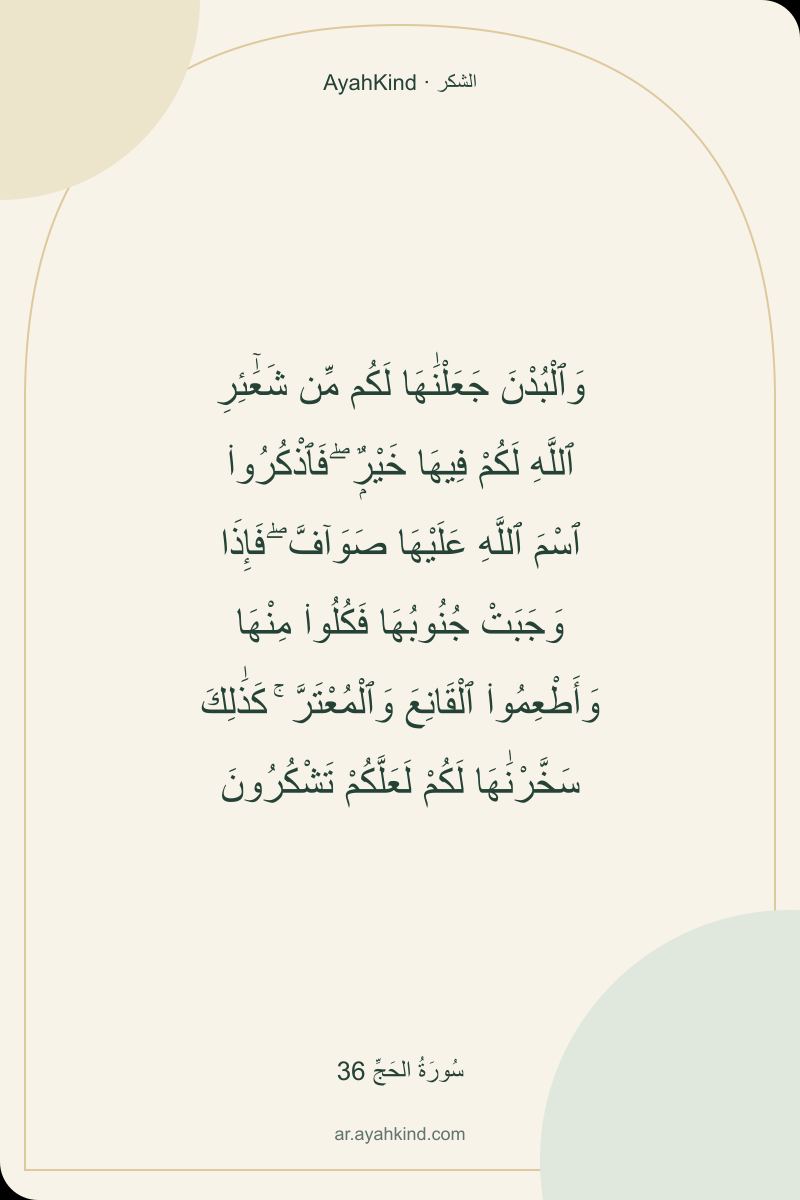 AyahKind · الشكر
وَٱلْبُدْنَ جَعَلْنَٰهَا لَكُم مِّن شَعَٰٓئِرِ
ٱللَّهِ لَكُمْ فِيهَا خَيْرٌۭ ۖ فَٱذْكُرُوا۟
ٱسْمَ ٱللَّهِ عَلَيْهَا صَوَآفَّ ۖ فَإِذَا
وَجَبَتْ جُنُوبُهَا فَكُلُوا۟ مِنْهَا
وَأَطْعِمُوا۟ ٱلْقَانِعَ وَٱلْمُعْتَرَّ ۚ كَذَٰلِكَ
سَخَّرْنَٰهَا لَكُمْ لَعَلَّكُمْ تَشْكُرُونَ
سُورَةُ الحَجِّ 36
ar.ayahkind.com